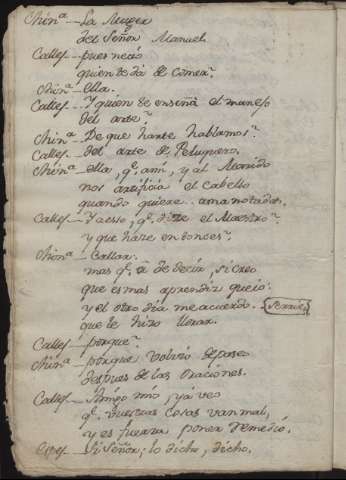 Chin.ª — La Muger
del Señor Manuel.
Calles — pues necio
quien te da de comer?
Chin.ª — ella.
Calles — Y quien te enseña el manejo
del arte?
Chin.ª — De que harte hablamos?
Calles — del arte de Peluquero.
Chin.ª — ella, q.e ami, y al Marido
nos artificia el cabello
quando quiere. amanotadas.
Calles — Y aeso, q.e dize el Maestro?
y que haze entonces?
Chin.ª — Callar.
mas q.e ã de decir, si creo
que es mas aprendiz que io
y el otro dia me acuerdo.
que le hizo llorar.
Calles — porque?
Chin.ª — porque volvio de paseo
despues de las Oraciones.
Calles — Amigo mio, ya veo
q.e vuestras cosas van mal,
y es fuerza poner remedio.
Espej — Si Señor; lo dicho, dicho,